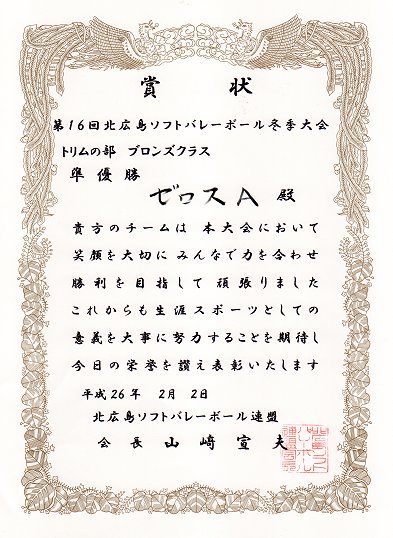 賞状
第16回北広島ソフトバレーボール冬季大会
トリムの部 ブロンズクラス
準優勝
ゼロスA 殿
貴方のチームは 本大会において
笑顔を大切に みんなで力を合わせ
勝利を目指して 頑張りました
これからも生涯スポーツとしての
意義を大事に努力することを期待し
今日の栄誉を讃え表彰いたします
平成26年 2月 2日
北広島ソフトバレーボール連盟
会長 山﨑宣夫